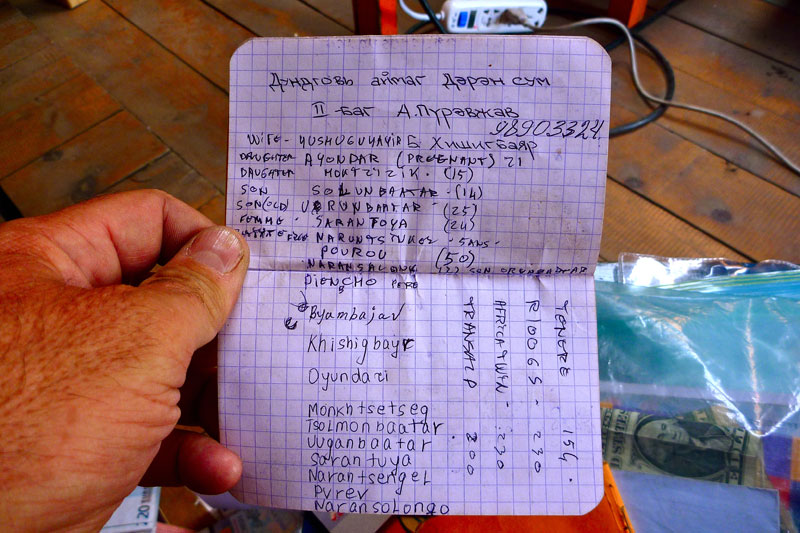 Дундговь аймаг Дэрэн сум
II баг А.Пүрэвжав
98903324
WIFE - YUSHUGUYAYIR Б. Хишигбаяр
DAUGHTER AYONDAR (PREGNANT) 21
DAUGHTER MONTZIZIK. (15)
SON SOLUNBAATAR - (14)
SON (OLD) URUNBAATAR - (25)
FEMME - SARANTOYA (24)
FILLE NARUNTSTUKEL - 5ANS -
POUROU (50)
NARANSALONG
DIENCHO PERE
Byambajav
Khishigbayr
Oyundari
Monkhtsetseg
Tsolmonbaatar
Uuganbaatar
Sarantuya
Narantsengel
Pvrev
Naransolongo
TENERE 154.
R100GS - 230
AFRICA TWIN - 230
TRANSALP 200